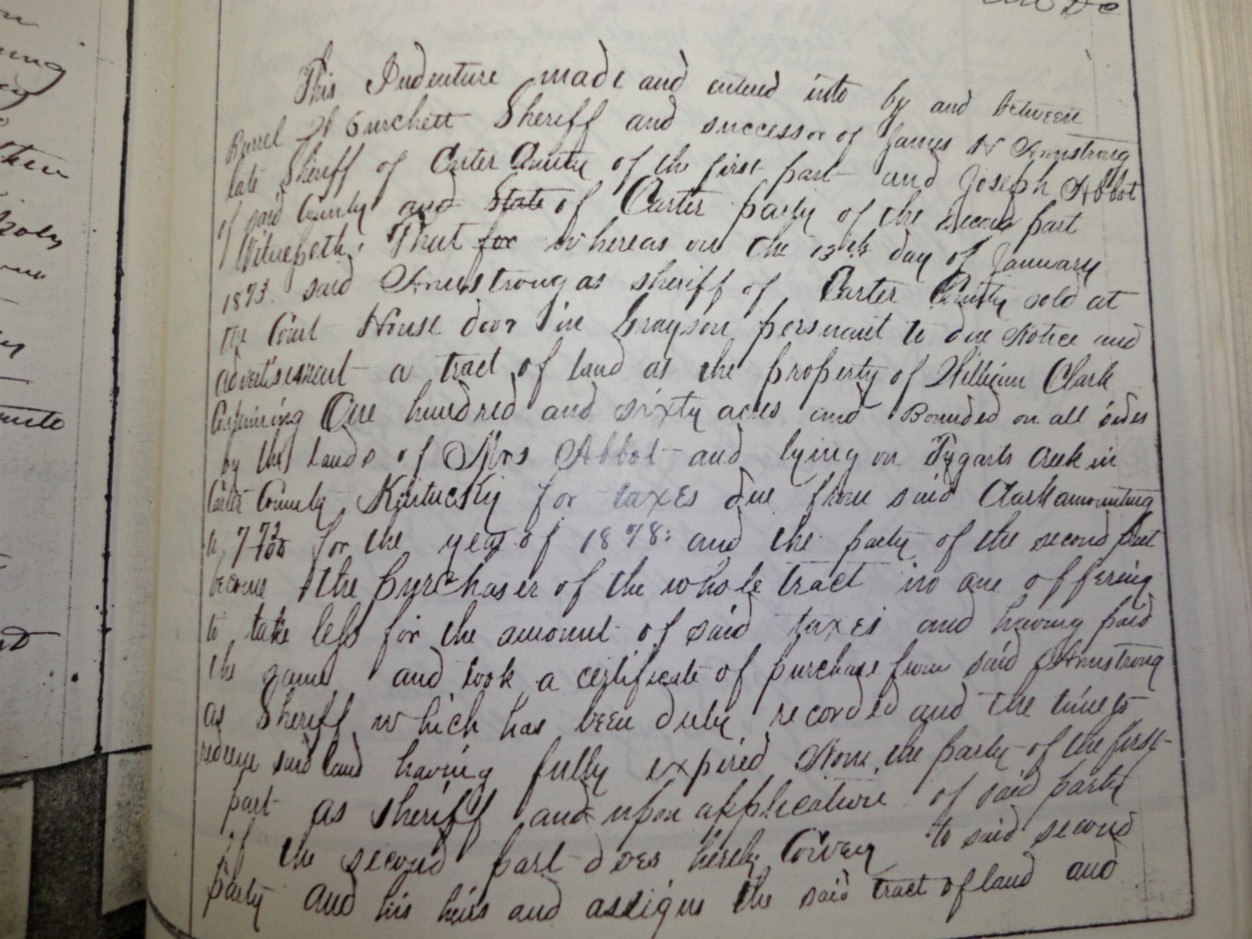 This Indenture made and entered into by and between
H Burchett Sheriff and successor of James W Armstrong
late Sheriff of Carter County of the first part and Joseph Abbot
of said County and State of Carter party of the second part
Witnesseth: That for whereas on the 13th day of January
said Armstrong as sheriff of Carter County sold at
the Court House door in Grayson persuant to due Notice and
advertisement a tract of land as the property of William Clark
One hundred and sixty acres and Bounded on all sides
by the lands of Mrs Abbot and lying on Tygarts Creek in
Carter County Kentucky for taxes due from said Clark amounting
to for the year of 1878: and the party of the second part
become the purchaser of the whole tract no one offering
to take less for the amount of said taxes and having paid
the same and took a certificate of purchase from said Armstrong
as Sheriff which has been duly recorded and the time to
redeem said land having fully expired Now, the party of the first
part as sheriff and upon application of said party
of the second part does hereby Convey to said second
party and his heirs and assigns the said tract of land and